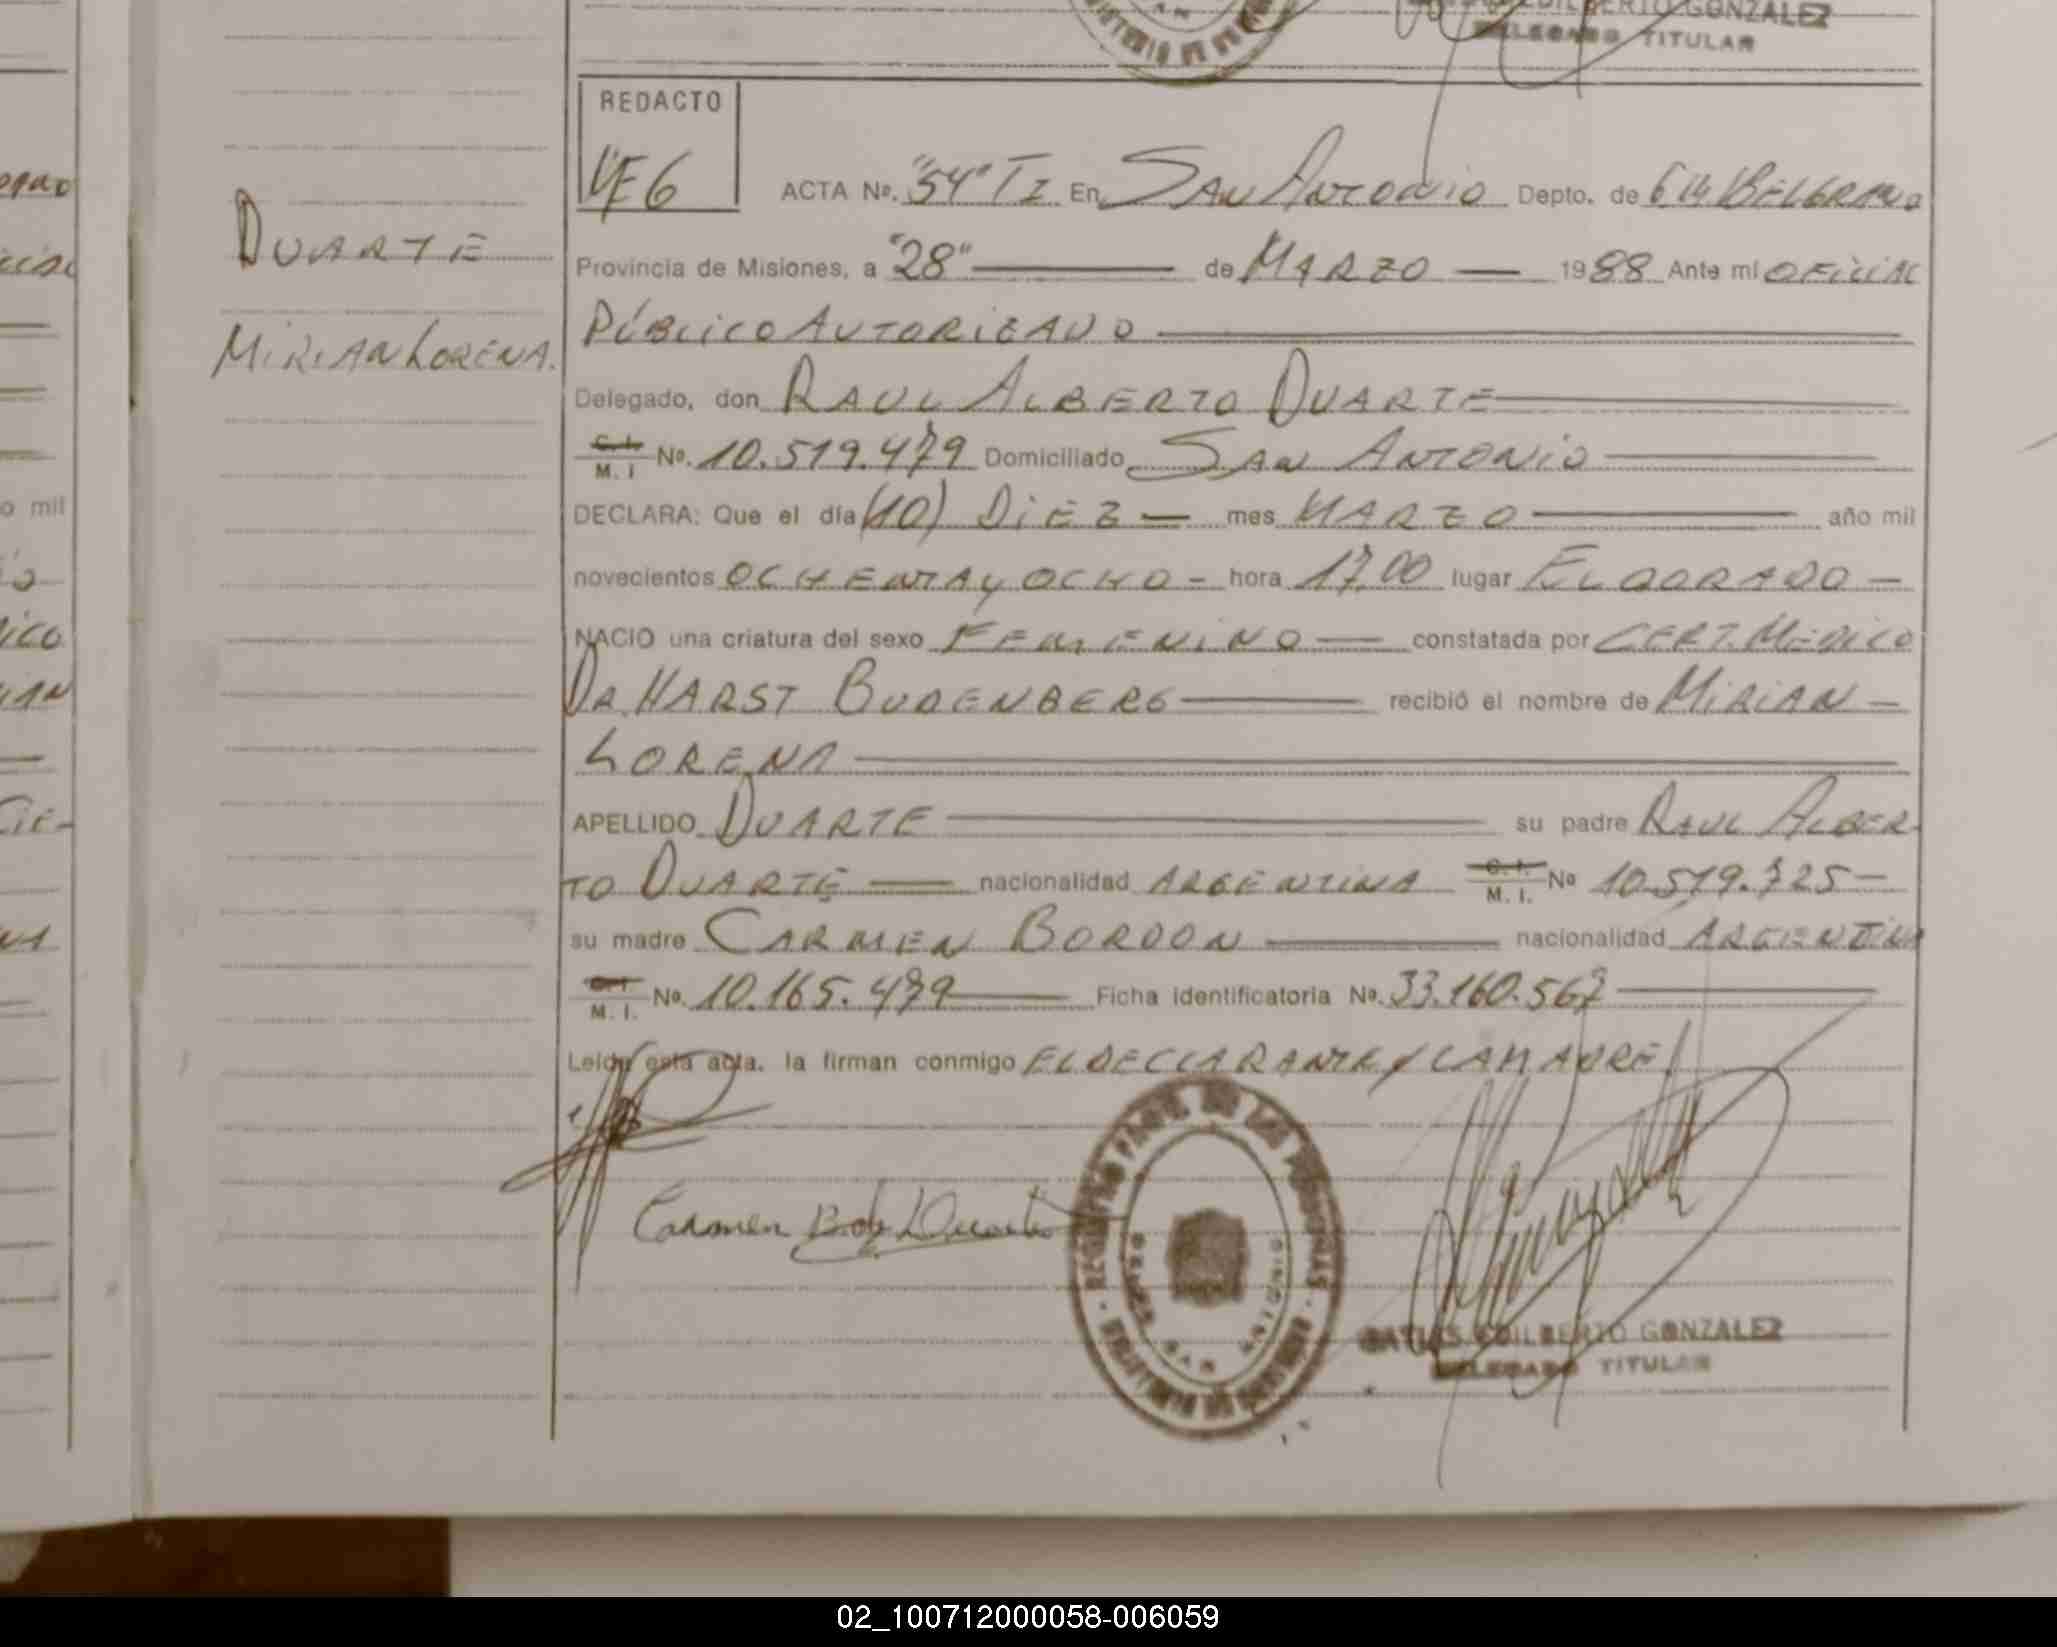 EDILBERTO GONZALEZ
DELEGADO TITULAR
REDACTO
ACTA Nº. "54" TI En SAN ANTONIO Depto. de G M BELGRANO
DUARTE
Provincia de Misiones, a "28" de MARZO 1988 Ante mí OFICIAL
PÚBLICO AUTORIZADO
MIRIAN LORENA.
Delegado, don RAUL ALBERTO DUARTE
C. I.
M. I Nº. 10.519.479 Domiciliado SAN ANTONIO
DECLARA: Que el día (10) DIEZ mes MARZO año mil
novecientos OCHENTA y OCHO hora 17,00 lugar ELDORADO
NACIO una criatura del sexo FEMENINO constatada por CERT. MEDICO
DR. HARST BUDENBERG recibió el nombre de MIRIAN
LORENA
APELLIDO DUARTE su padre RAUL ALBER-
TO DUARTE nacionalidad ARGENTINA C. I.
M. I. Nº 10.519.725
su madre CARMEN BORDON nacionalidad ARGENTINA
C. I.
M. I. Nº. 10.165.479 Ficha identificatoria Nº. 33.160.567
Leída esta acta, la firman conmigo EL DECLARANTE y LA MADRE
Carmen B. de Duarte
REGISTRO PROV. DE LAS PERSONAS
SAN ANTONIO
EDILBERTO GONZALEZ
DELEGADO TITULAR
02_100712000058-006059